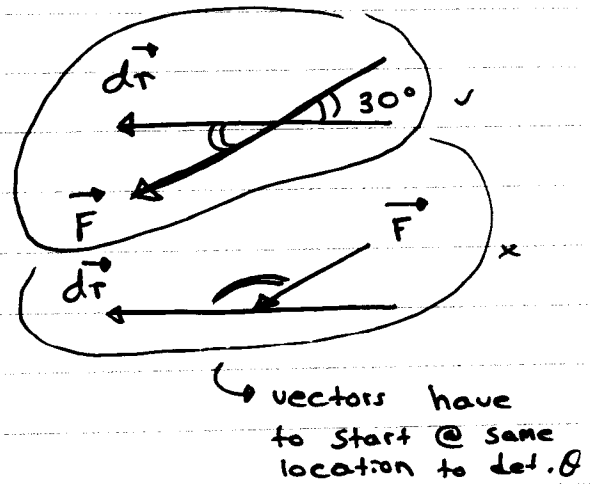 dr
30° ✓
F
F
dr
×
↳ vectors have
to start @ same
location to det. θ